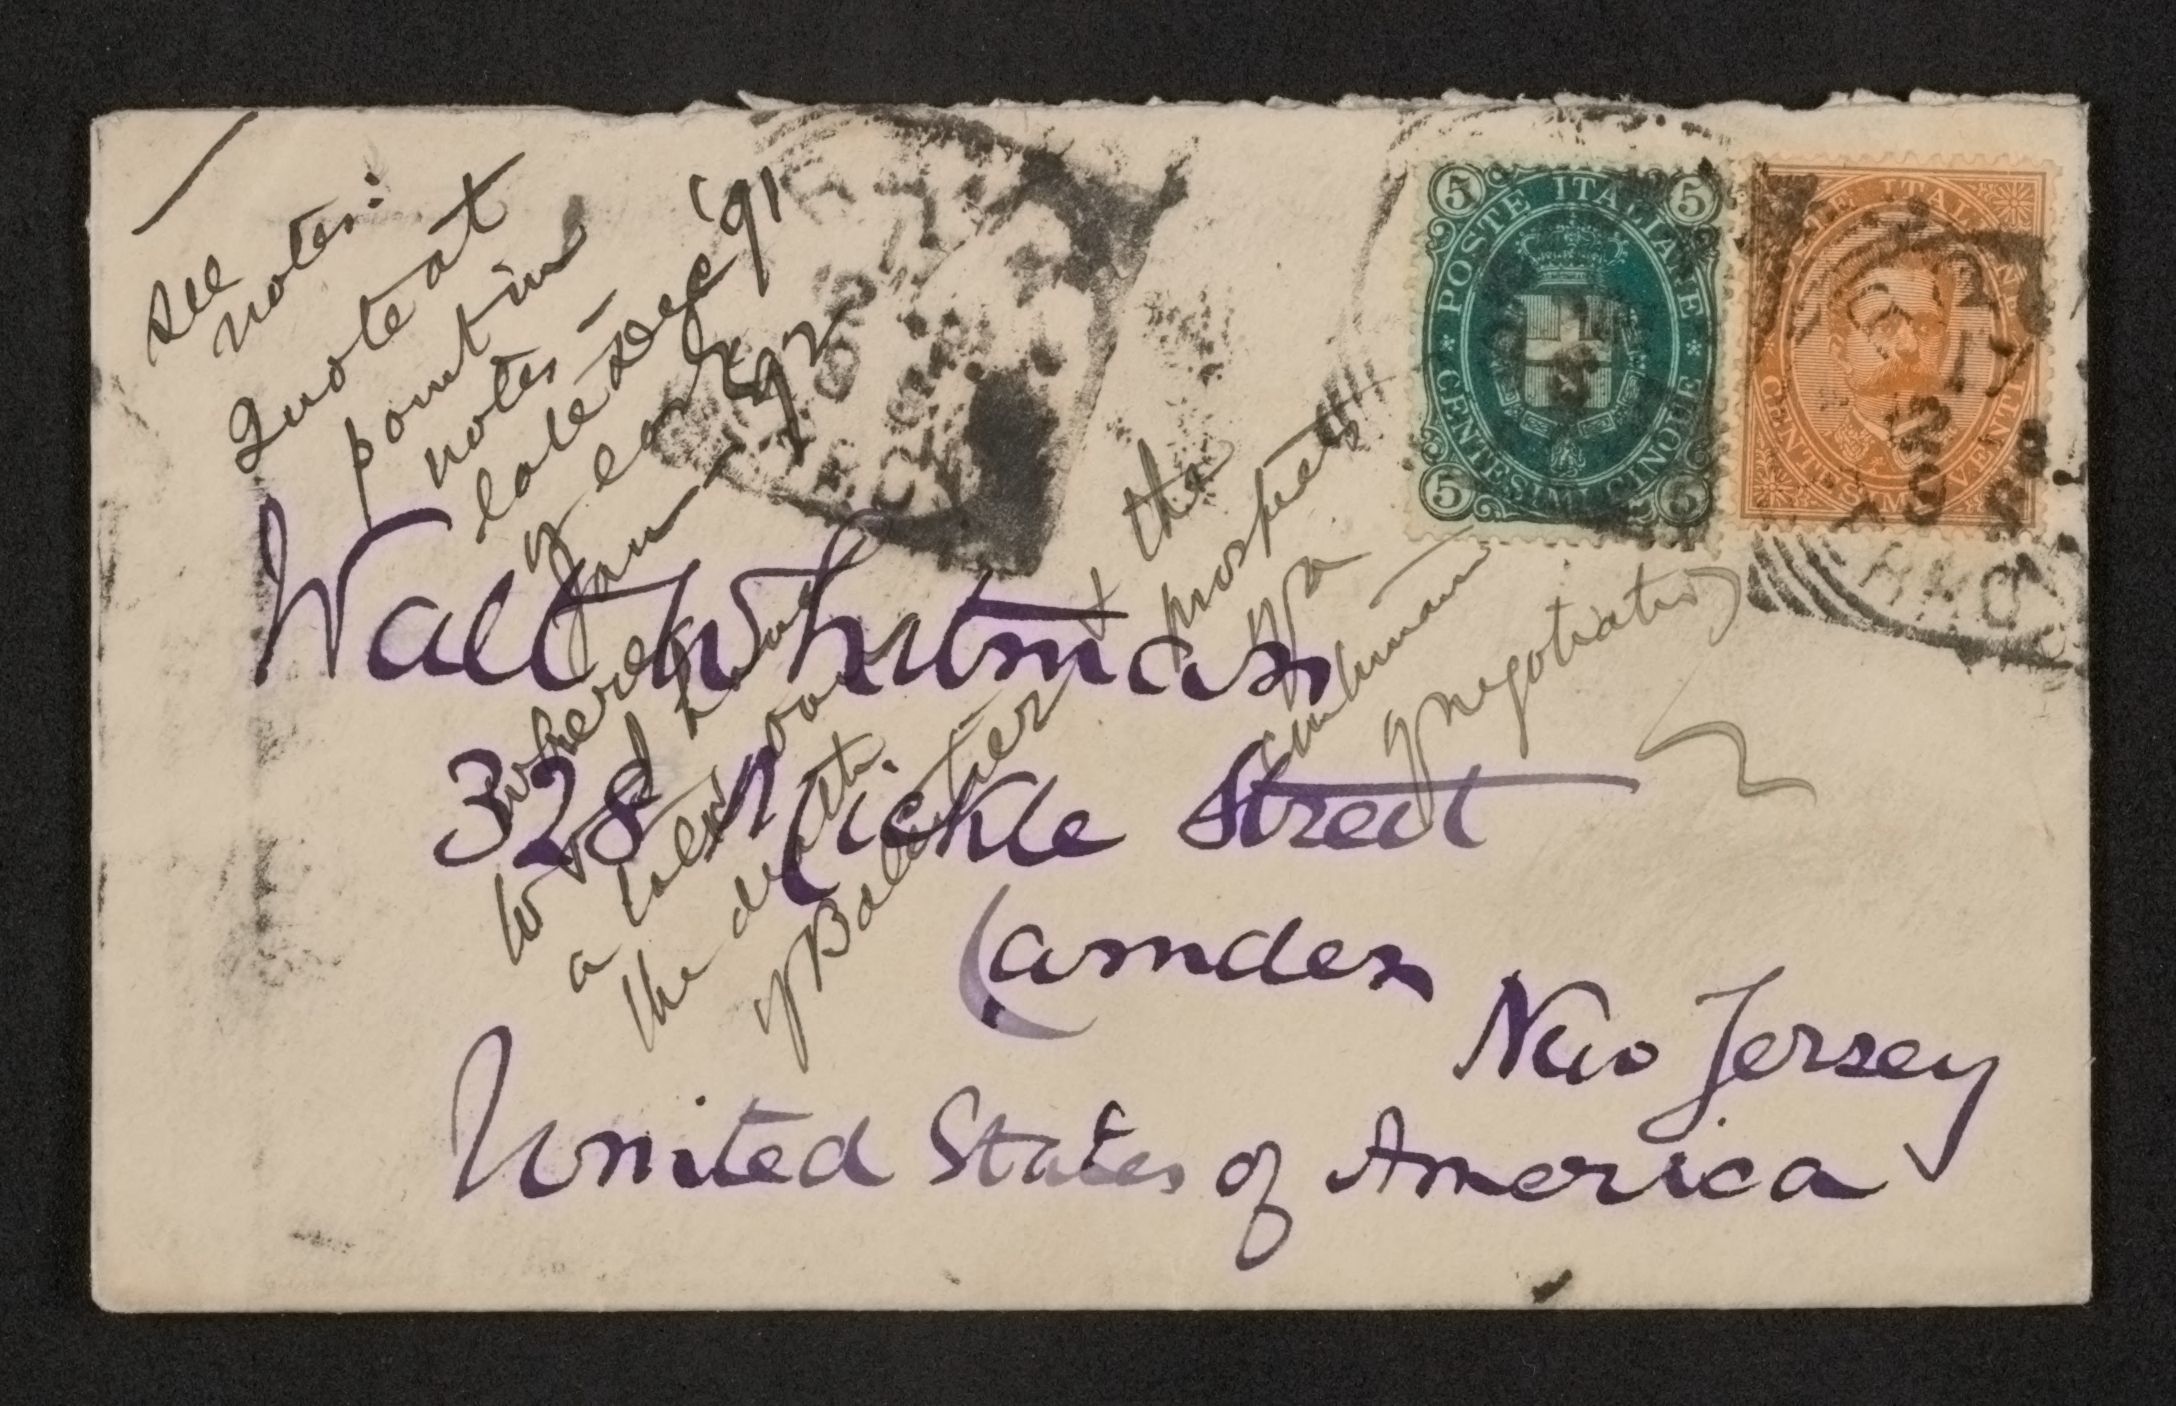 see
notes:
Quote at
point in
notes –
late Dec '91
or early
Jan – '92
where
word
a
the death
of Balestier & the
prospect
of a
culmination
of negotiations
Walt Whitman
328 Mickle Street
Camden
New Jersey
United States of America
5 5
POSTE ITALIANE
CENTESIMI CINQUE
5 5
POSTE ITALIANE
CENTESIMI VENTI